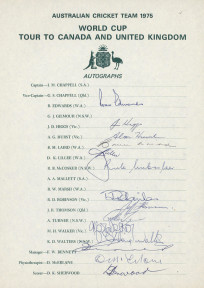 AUSTRALIAN CRICKET TEAM 1975
WORLD CUP
TOUR TO CANADA AND UNITED KINGDOM
AUTOGRAPHS
Captain—I. M. CHAPPELL (S.A.)
Vice-Captain—G. S. CHAPPELL (Q'ld.)
R. EDWARDS (W.A.) Ross Edwards
G. J. GILMOUR (N.S.W.)
J. D. HIGGS (Vic.) J Higgs
A. G. HURST (Vic.) Alan Hurst
B. M. LAIRD (W.A.)
D. K. LILLEE (W.A.)
R. B. McCOSKER (N.S.W.)
A. A. MALLETT (S.A.)
R. W. MARSH (W.A.)
R. D. ROBINSON (Vic.)
J. R. THOMSON (Q'ld.)
A. TURNER (N.S.W.)
M. H. N. WALKER (Vic.)
K. D. WALTERS (N.S.W.)
Manager—F. W. BENNETT
Physiotherapist—D. McERLANE
Scorer—D. K. SHERWOOD Sherwood